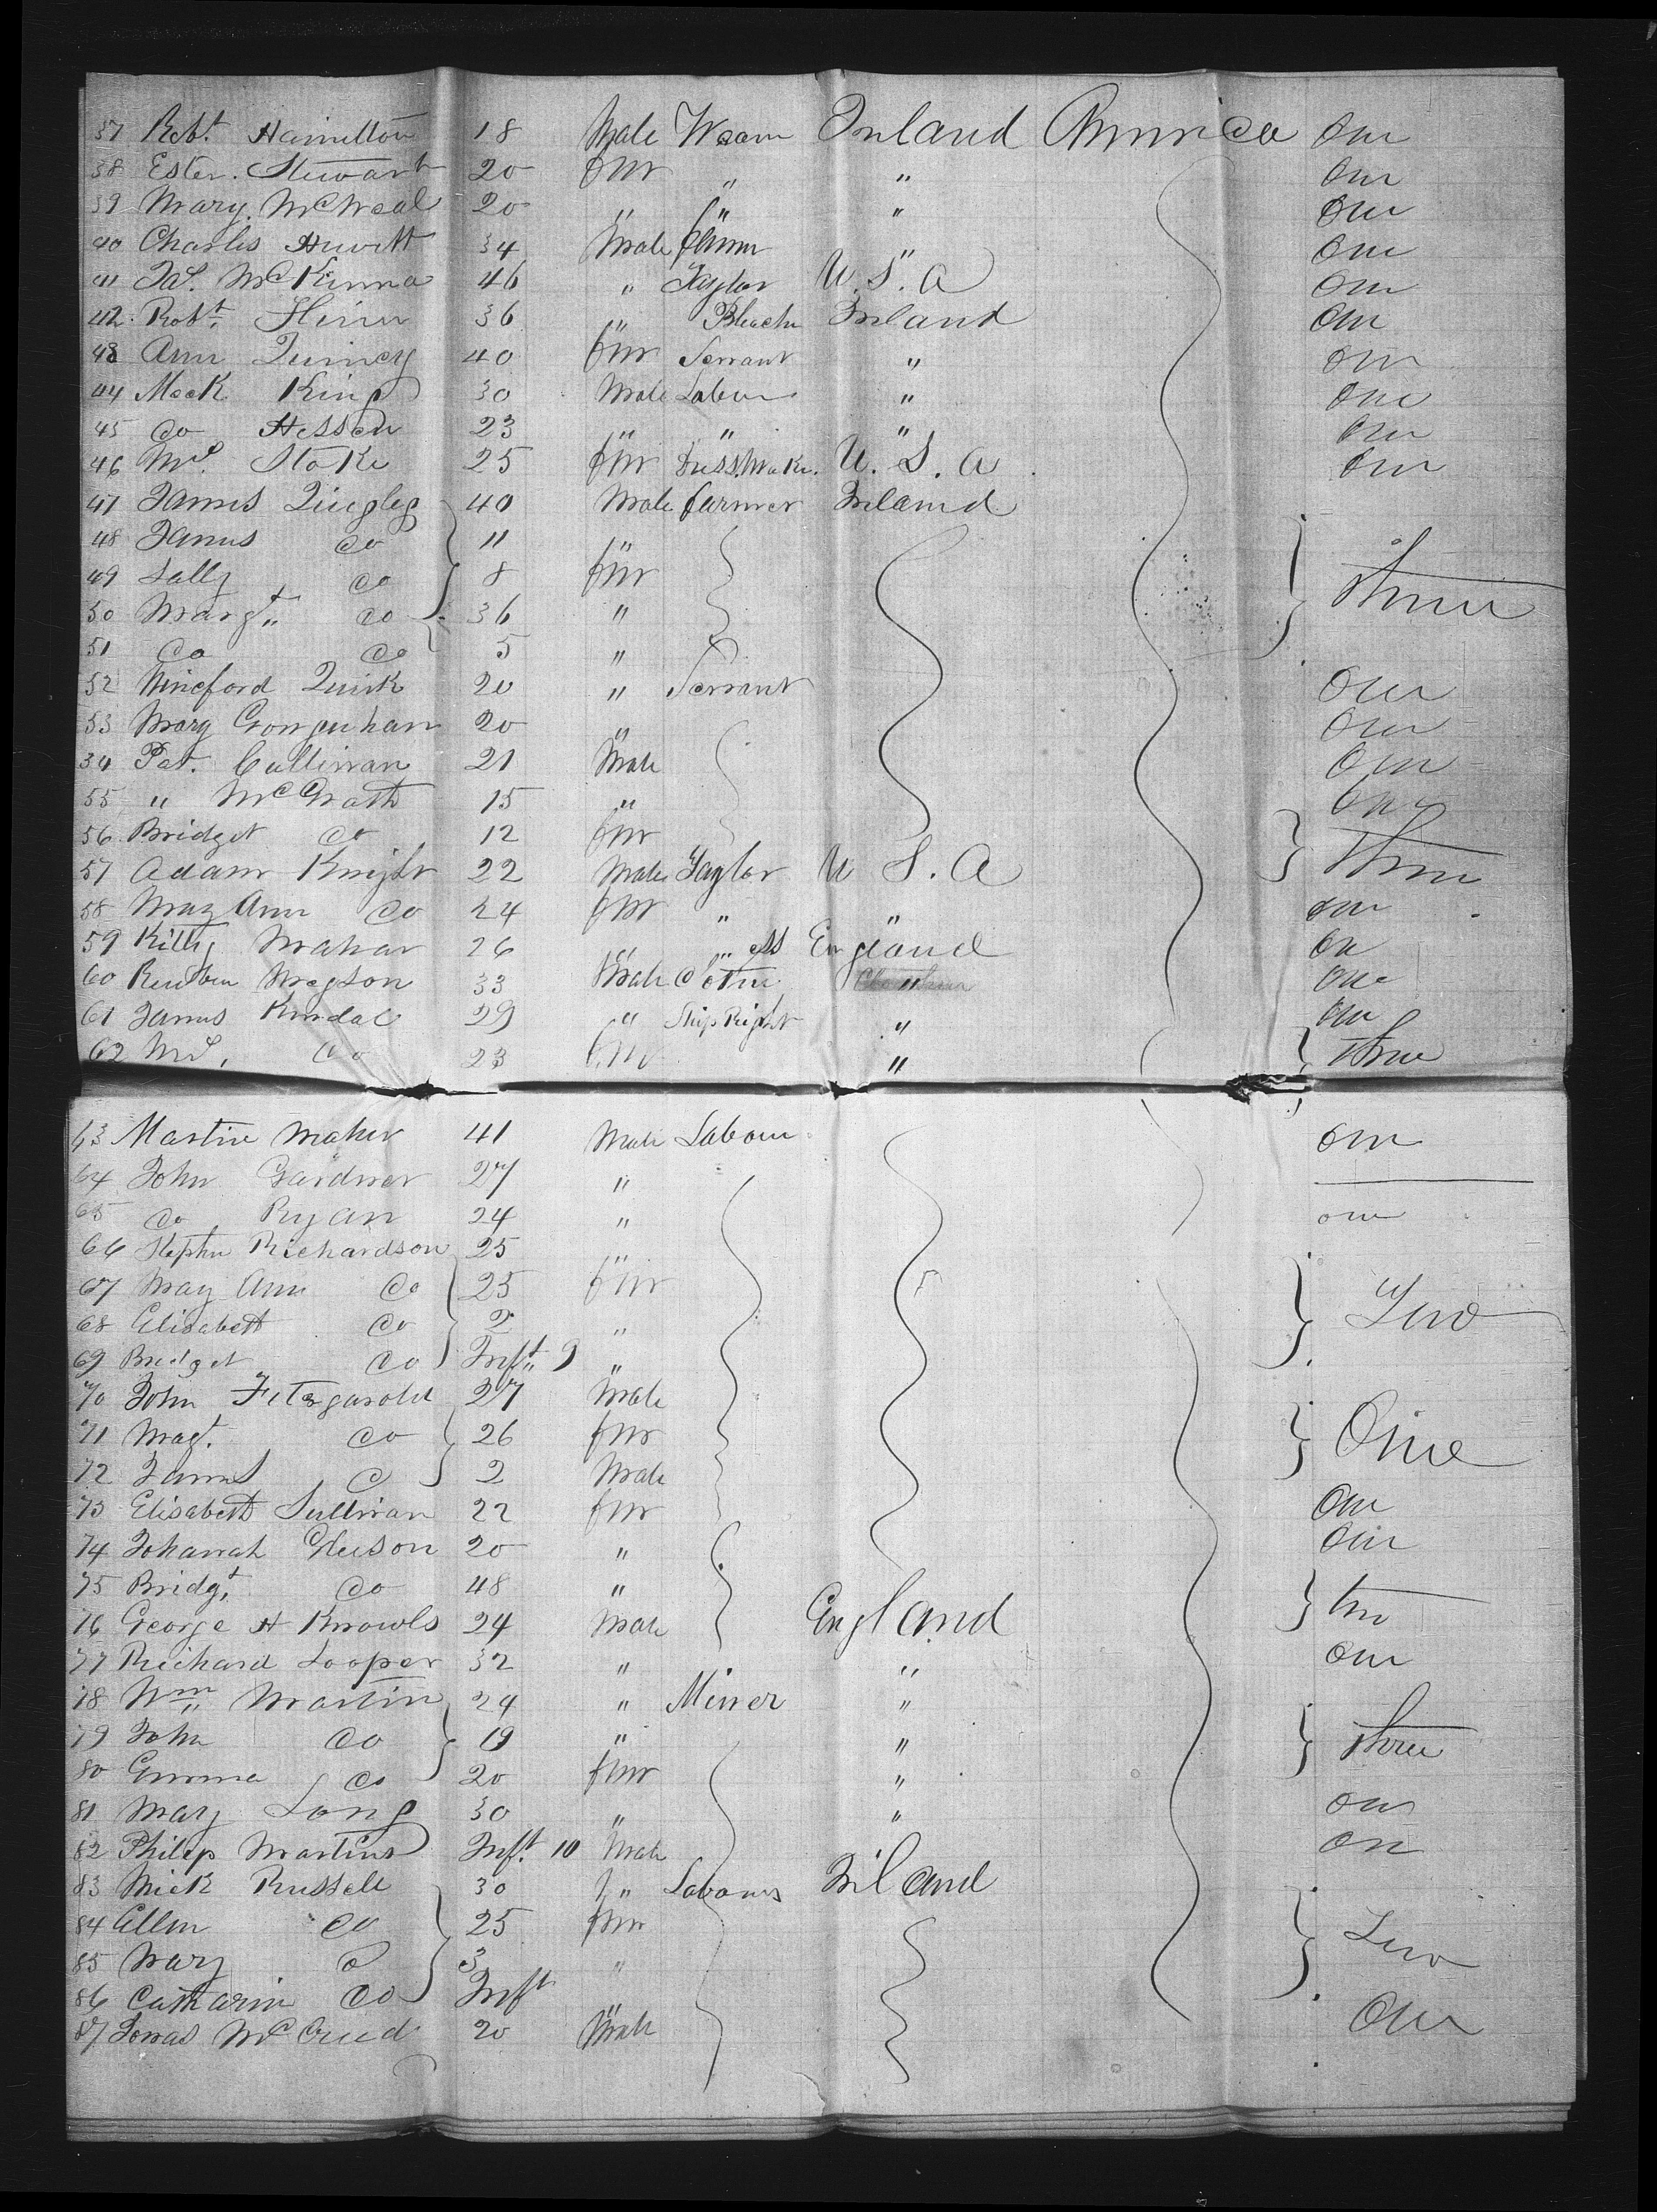 37 Robt. Hamilton 18 Male Weavr Ireland America One
38 Ester. Stewart 20 fem " " One
39 Mary. McNeal 20 " " " One
40 Charles Hewitt 34 Male farmr " One
41 Jas. McKenna 46 " Taylor U.S.A One
42 Robt. 36 " Bleachr Ireland One
43 Ann Quincy 40 fem Servant " One
44 Mock King 30 Male Labour " One
45 Do Hessen 23 " " " One
46 Mrs. Stoke 25 fem DressMaker. U.S.A. One
47 James Quigley 40 Male farmer Ireland
48 James Do 11 "
49 Sally Do 8 fem Three
50 Margt. Do 36 "
51 Do Do 5 "
52 Wineford Quirk 20 " Servant One
53 Mary 20 " One
54 Pat. Cullinan 21 Male One
55 " McGrath 15 " One
56 Bridget Do 12 fem
57 Adam Knight 22 Male Taylor U S. A Three
58 May Ann Do 24 fem " " One
59 Kitty Mahar 26 " " ess England On
60 Reuben Megson 33 Male " One
61 James Kindal 29 " Ship Right " One
62 Mrs. Do 23 fem " Three
63 Martin Maher 41 Male Labour One
64 John Gardner 27 "
65 Do Ryan 24 " one
66 Stephn Richardson 25 "
67 May Ann Do 25 fem
68 Elisabeth Do 2 " Two
69 Bridget Do Inft. 9 "
70 John Fitzgarold 27 Male
71 Magt. Do 26 fem One
72 James Do 2 Male
73 Elisabeth Sullivan 22 fem One
74 Johanah Gleeson 20 " One
75 Bridgt. Do 48 "
76 George H Knowls 24 Male England
77 Richard Looper 32 " " One
78 Wm. Martin 24 " Miner "
79 John Do 19 " " Three
80 Emma Do 20 fem "
81 Mary Long 30 " " one
82 Philip Martins Inft. 10 Male on
83 Mick Russell 30 " Labours Ireland
84 Ellen Do 25 fem Two
85 Mary Do 3 "
86 Catharin Do Inft "
87 McCreed 20 Male One